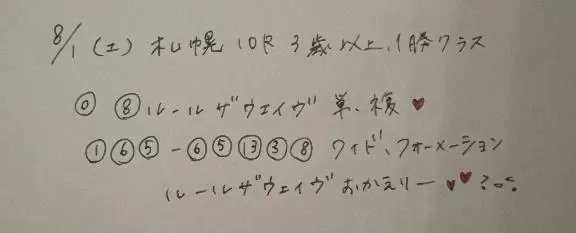 8/1(土)札幌10R 3歳以上、1勝クラス
◎ ⑧ルールザウェイヴ 単、複♥
①⑥⑤-⑥⑤⑬③⑧ ワイド、フォーメーション
ルールザウェイヴおかえりー♥♥